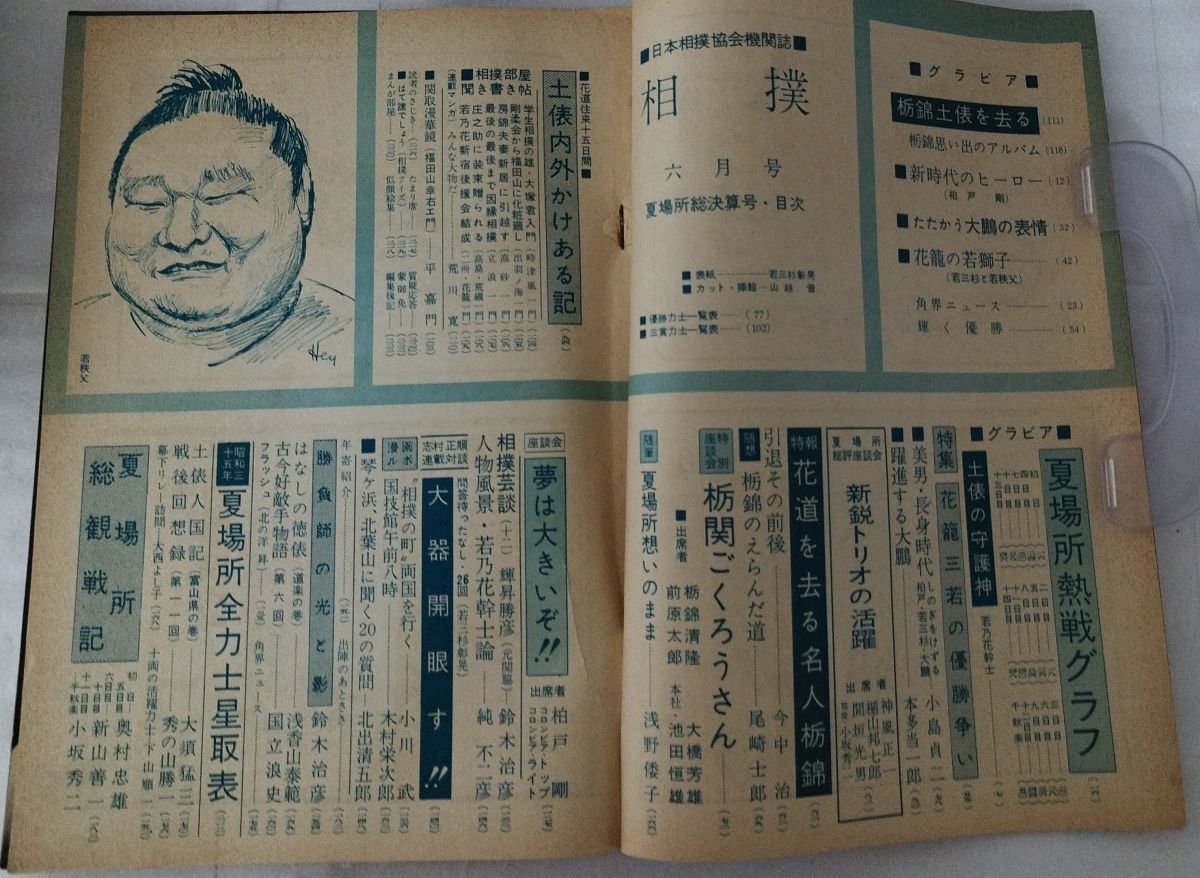 ■日本相撲協会機関誌■
相撲
六月号
夏場所総決算号・目次
■表紙………若三杉彰晃
■カット・挿絵…山越 晋
■優勝力士一覧表……(77)
■三賞力士一覧表……(102)
■グラビア■
栃錦土俵を去る(111)
栃錦思い出のアルバム(118)
■新時代のヒーロー(12)
(柏戸 剛)
■たたかう大鵬の表情(32)
■花籠の若獅子(42)
(若三杉と若秩父)
角界ニュース(23)
輝く優勝(54)
■花道往来十五日間■
土俵内外かけある記
相撲部屋聞き書き帖
学生相撲の雄・大塚君入門(時津風一門)
剛柔会から福田山に化粧廻し(出羽ノ海一門)
房錦夫妻新居に引越す(高砂一門)
最後の最後まで因縁相撲(立浪一門)
庄之助に装束贈られる(高島・荒磯一門)
若乃花新宿後援会結成(二所・花籠一門)
(連載マンガ) みんな大物だ…荒川 寛
■関取漫華鏡(福田山幸右エ門)…平 嘉門
読者のさじき
たまり席
賞疑応答
■はて誰でしょう(相撲クイズ)
蒙御免
まんが部屋
似顔絵集
編集後記
若秩父
Hey
■グラビア■
夏場所熱戦グラフ
初日
二日
三日
千秋楽
土俵の守護神
若乃花幹士
特集
花籠三若の優勝争い
■美男・長身時代
しのぎをけずる
柏戸・若三杉・大鵬
小島貞二
■躍進する大鵬…本多当一郎
夏場所総評座談会
新鋭トリオの活躍
出席者
神風正一
楯山邦七郎
間垣光男
司会・小坂秀二
特報
花道を去る名人栃錦
引退その前後…今中 治
随想
栃錦のえらんだ道…尾崎士郎
特別座談会
栃関ごくろうさん
■出席者
栃錦清隆
大橋芳雄
前原太郎
本社・池田恒雄
随筆
夏場所想いのまま…浅野倭子
座談会
夢は大きいぞ!!
出席者
柏戸 剛
コロンビア・トップ
コロンビア・ライト
相撲芸談(十二) 輝昇勝彦(元関脇)…鈴木治彦
人物風景・若乃花幹士論…純 不二彦
志村正順連載対談
大器開眼す!!
問答待ったなし・26回(若三杉彰晃)
"相撲の町"両国を行く…小川 武
国技館午前八時…木村栄次郎
■琴ヶ浜、北葉山に聞く20の質問…北出清五郎
年寄紹介
出陣のあとさき
勝負師の光と影…鈴木治彦
はなしの徳俵(道楽の巻)…浅香山泰範
古今好敵手物語(第六回)…国立浪史
フラッシュ(北の洋昇)
角界ニュース
昭和三十五年
夏場所全力士星取表
土俵人国記(富山県の巻)…大須猛三
戦後回想録(第一一回)…秀の山勝一
幕下リレー訪問…大西よし子
十両の活躍力士…下山順一
夏場所総観戦記
初日
五日目
奥村忠雄
六日目
十日目
新山善一
十一日目
千秋楽
小坂秀二